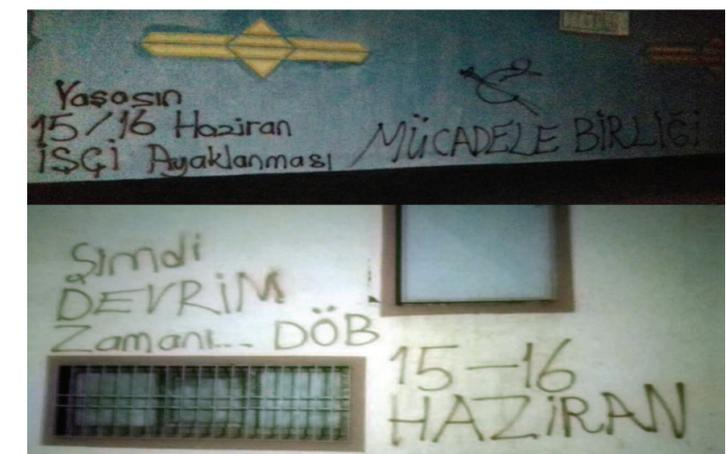 Yaşasın
15/16 Haziran
İŞÇİ Ayaklanması
MÜCADELE BİRLİĞİ
Şimdi
DEVRİM
Zamanı... DÖB
15-16
HAZİRAN